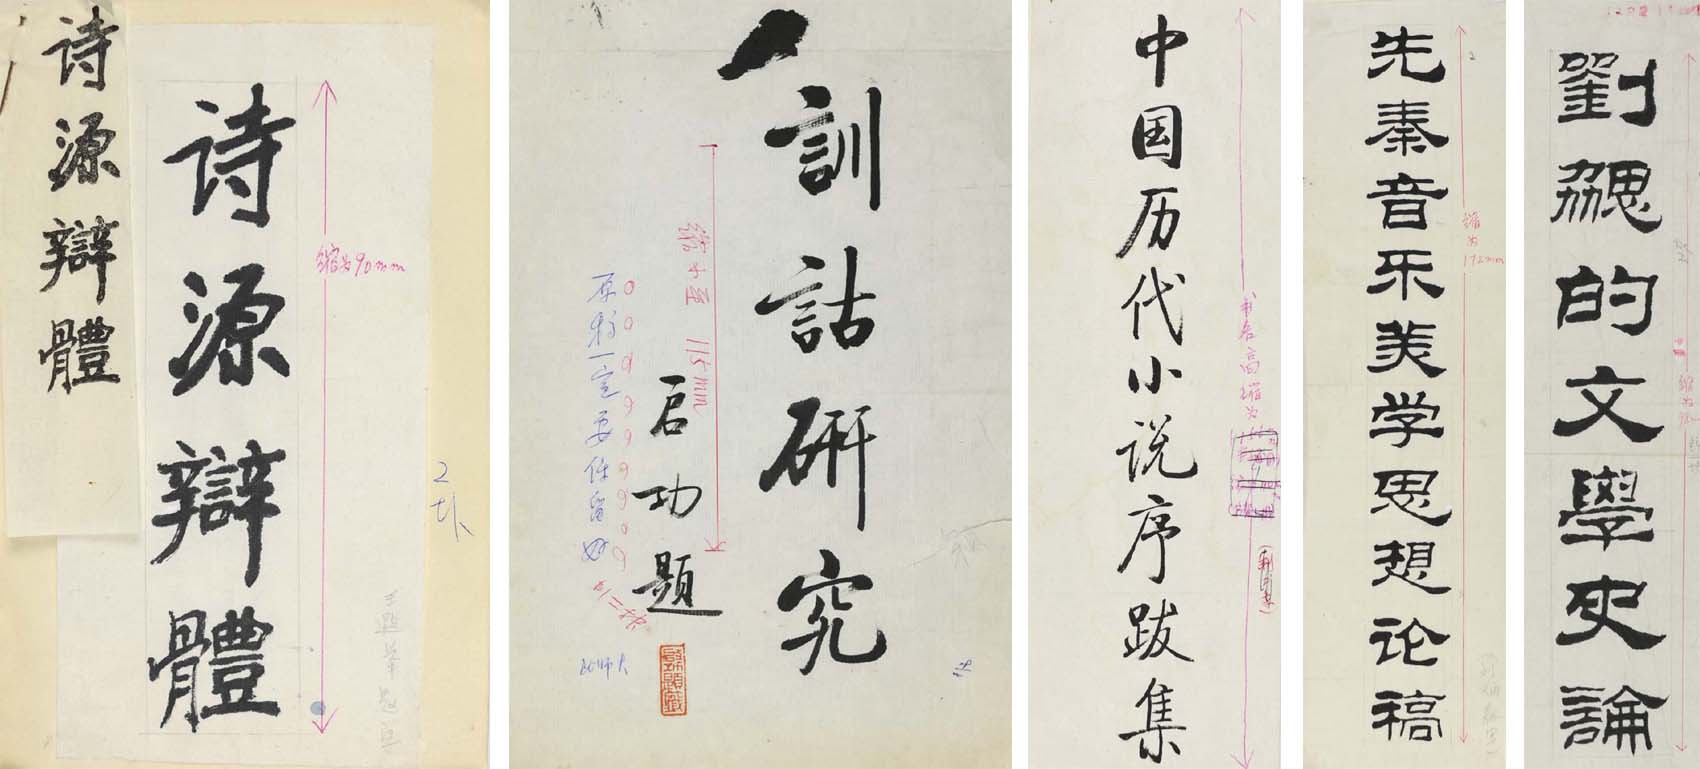 诗源辩體
诗源辯體
缩为90mm
2封
訓詁研究
启功題
缩小至 115mm
原稿一定要保留好
北师大
中国历代小说序跋集
书名高缩为
先秦音乐美学思想论稿
缩为172mm
劉勰的文學史論
缩为